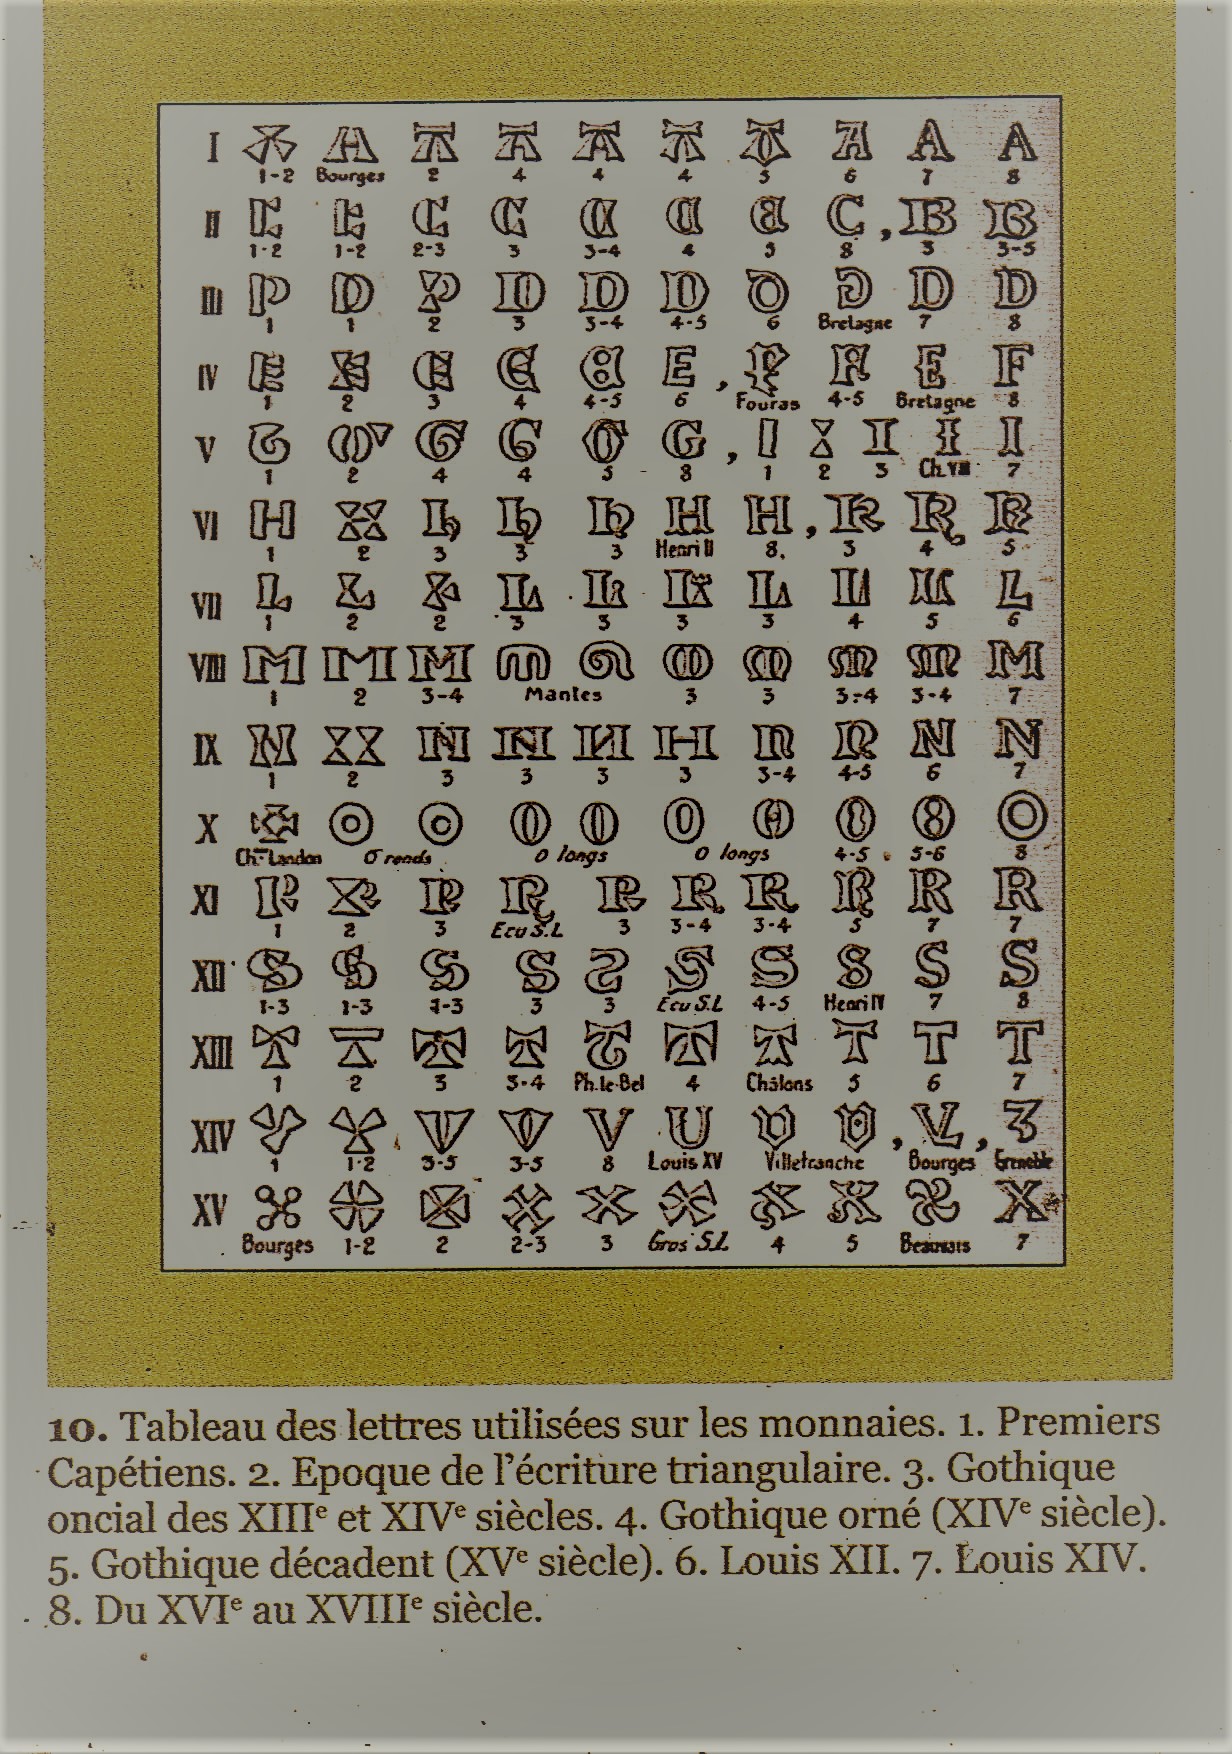 I A A A A A A A A A A
1-2 Bourges 2 4 4 4 5 6 7 8
II C C C C C C C C , B B
1-2 1-2 2-3 3 3-4 4 5 8 3 3-5
III D D D D D D D D D D
1 1 2 3 3-4 4-5 6 Bretagne 7 8
IV E E E E E E , F F F F
1 2 3 4 4-5 6 Fouras 4-5 Bretagne 8
V G G G G G G , I I I I I
1 2 4 4 5 8 1 2 3 Ch. VIII 7
VI H H H H H H H , K K K
1 2 3 3 3 Henri II 8. 3 4 5
VII L L L L L L L L L L
1 2 2 3 3 3 3 4 5 6
VIII M M M M M M M M M M
1 2 3-4 Mantes 3 3 3-4 3-4 7
IX N N N N N N N N N N
1 2 3 3 3 3 3-4 4-5 6 7
X O O O O O O O O O O
Ch.-Landon O ronds O longs O longs 4-5 5-6 8
XI R R R R R R R R R R
1 2 3 Ecu S.L 3 3-4 3-4 5 7 7
XII S S S S S S S S S S
1-3 1-3 1-3 3 3 Ecu S.L 4-5 Henri IV 7 8
XIII T T T T T T T T T T
1 2 3 3-4 Ph.le-Bel 4 Châlons 5 6 7
XIV V V V V V U V V , V , Z
1 1-2 3-5 3-5 8 Louis XV Villefranche Bourges Grenoble
XV X X X X X X X X X X
Bourges 1-2 2 2-3 3 Gros S.L. 4 5 Beauvais 7
10. Tableau des lettres utilisées sur les monnaies. 1. Premiers
Capétiens. 2. Epoque de l'écriture triangulaire. 3. Gothique
oncial des XIIIe et XIVe siècles. 4. Gothique orné (XIVe siècle).
5. Gothique décadent (XVe siècle). 6. Louis XII. 7. Louis XIV.
8. Du XVIe au XVIIIe siècle.